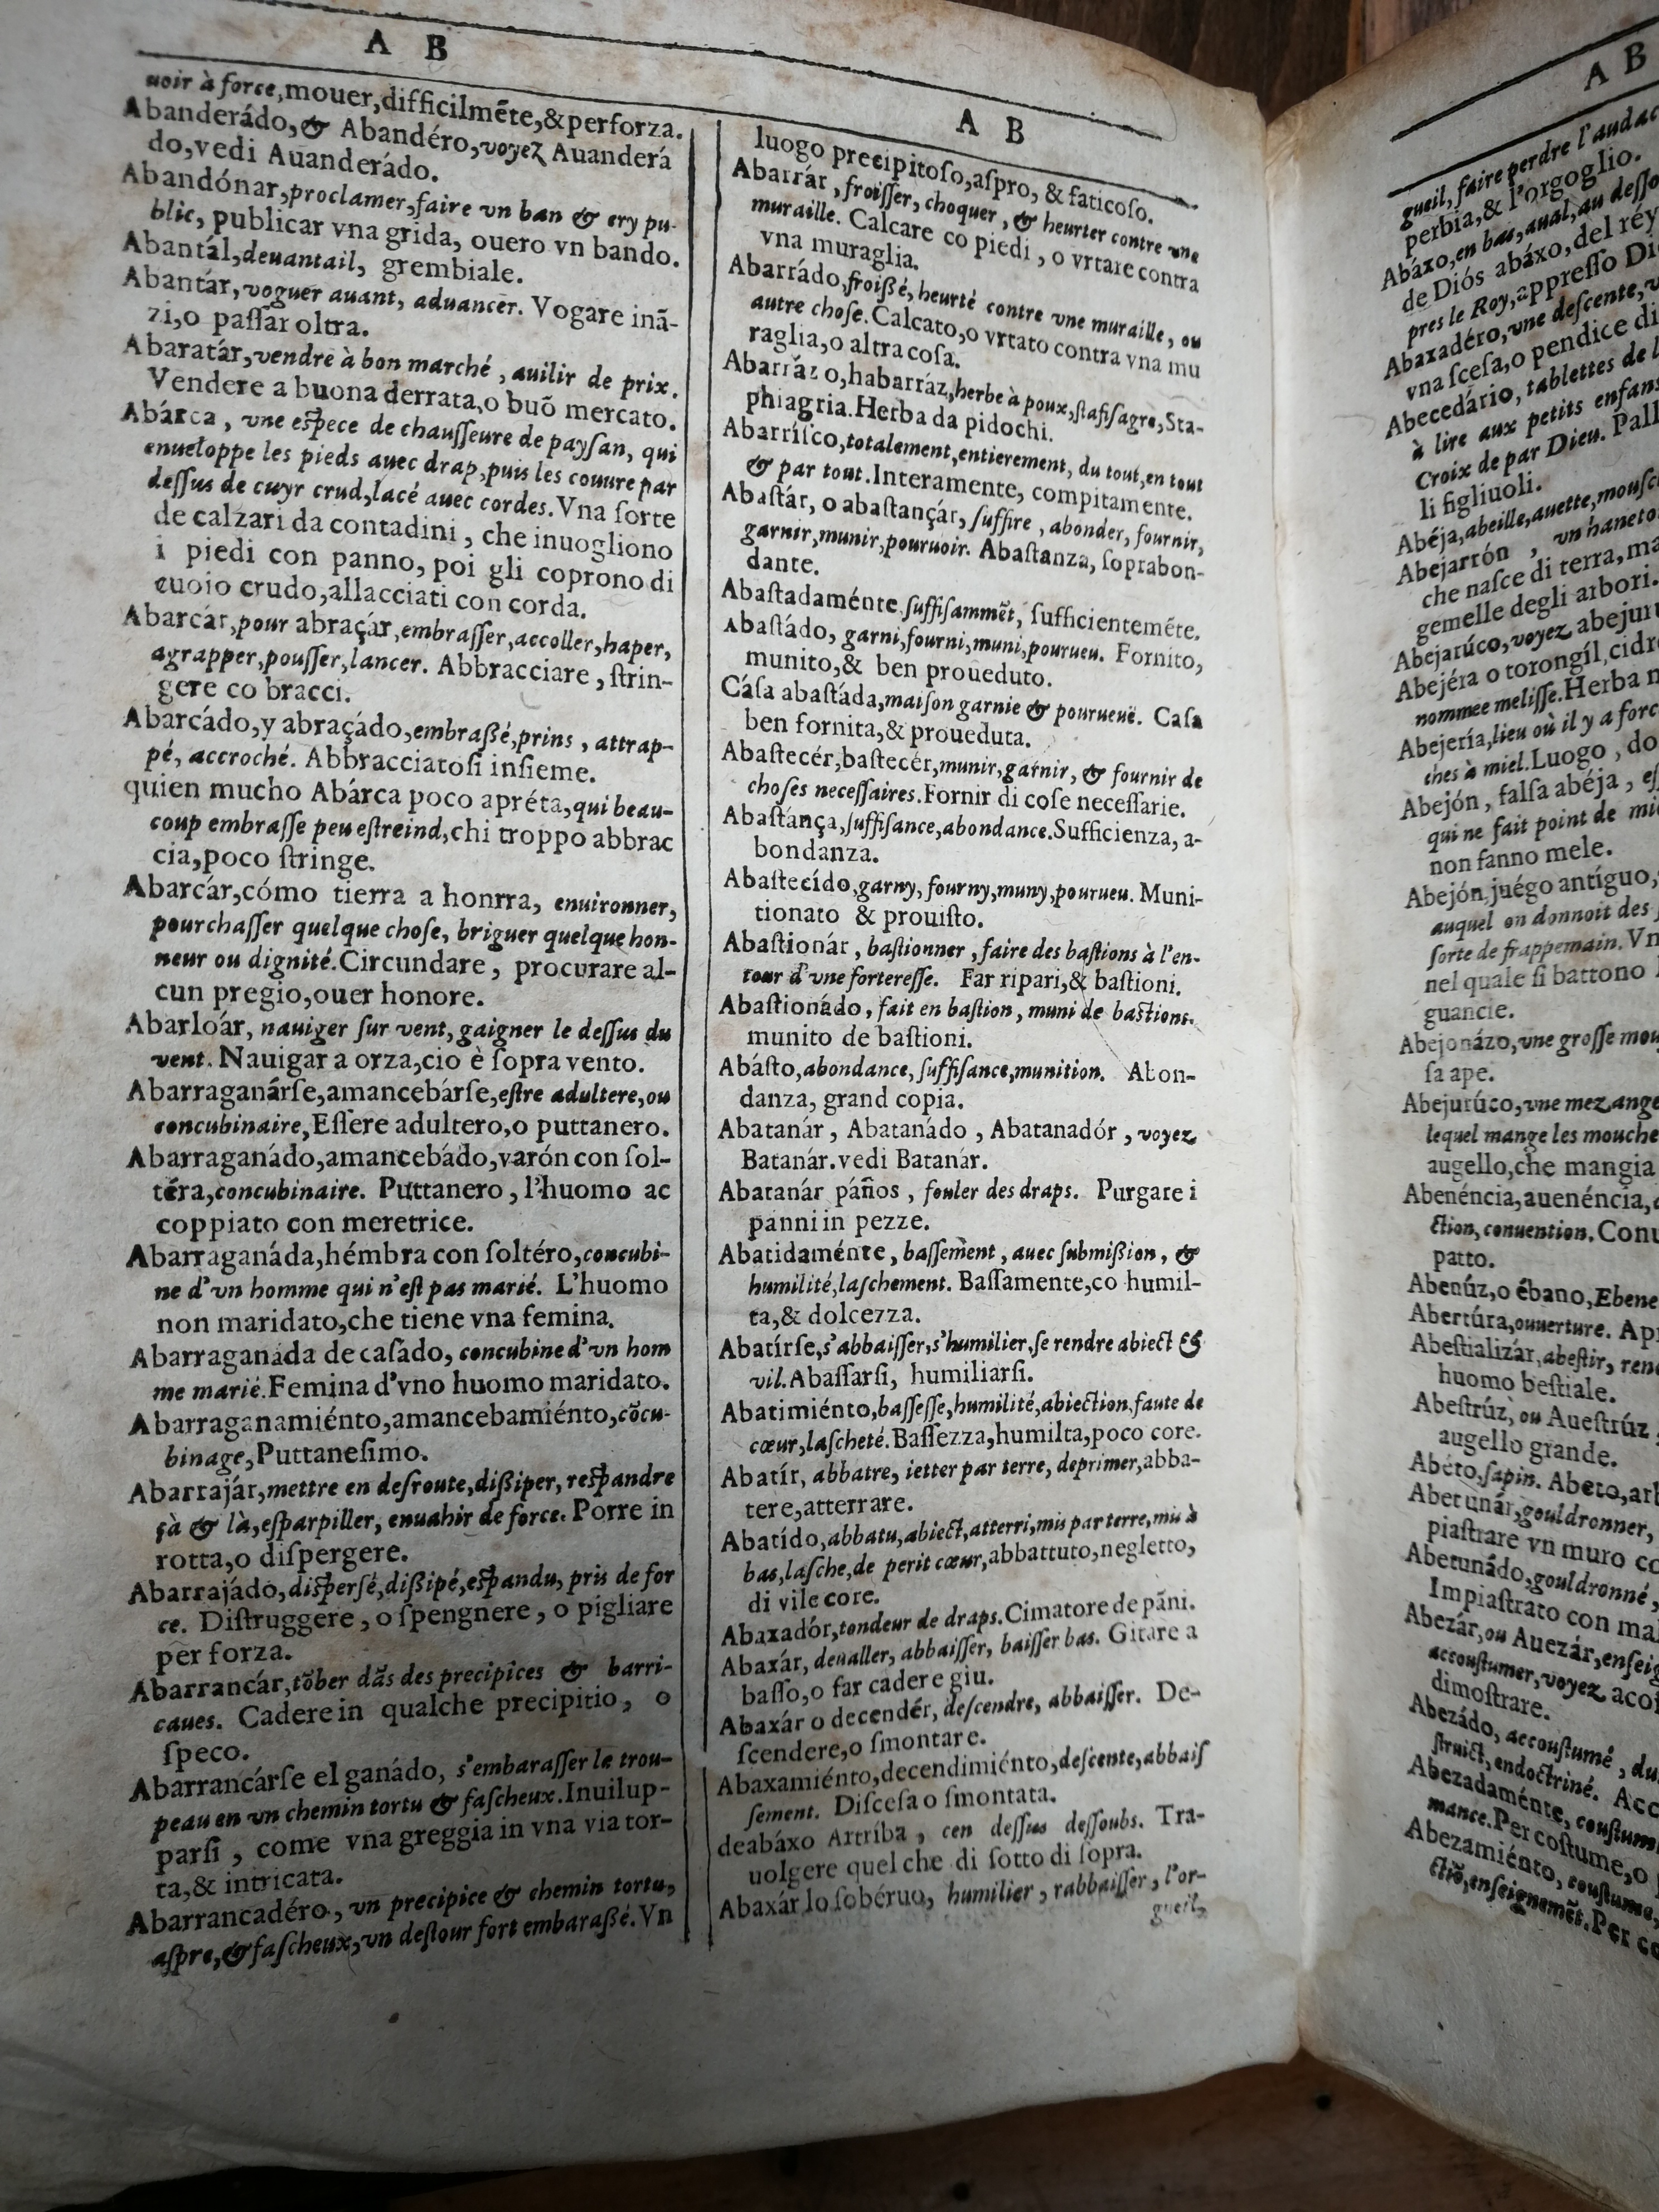 A B
uoir à force, mouer, difficilmẽte, & perforza.
Abanderádo, & Abandéro, voyez Auanderá
do, vedi Auanderádo.
Abandónar, proclamer, faire vn ban & cry pu-
blic, publicar vna grida, ouero vn bando.
Abantál, deuantail, grembiale.
Abantár, voguer auant, aduancer. Vogare inã-
zi, o paſſar oltra.
Abaratár, vendre à bon marché, auilir de prix.
Vendere a buona derrata, o buõ mercato.
Abárca, vne eſpece de chauſſeure de payſan, qui
enueloppe les pieds auec drap, puis les couure par
deſſus de cuyr crud, lacé auec cordes. Vna ſorte
de calzari da contadini, che inuogliono
i piedi con panno, poi gli coprono di
cuoio crudo, allacciati con corda.
Abarcár, pour abraçár, embraſſer, accoller, haper,
agrapper, pouſſer, lancer. Abbracciare, ſtrin-
gere co bracci.
Abarcádo, y abraçádo, embraßé, prins, attrap-
pé, accroché. Abbracciatoſi inſieme.
quien mucho Abárca poco apréta, qui beau-
coup embraſſe peu eſtreind, chi troppo abbrac
cia, poco ſtringe.
Abarcár, cómo tierra a honrra, enuironner,
pourchaſſer quelque choſe, briguer quelque hon-
neur ou dignité. Circundare, procurare al-
cun pregio, ouer honore.
Abarloár, nauiger ſur vent, gaigner le deſſus du
vent. Nauigar a orza, cio è ſopra vento.
Abarraganárſe, amancebárſe, eſtre adultere, ou
concubinaire, Eſſere adultero, o puttanero.
Abarraganádo, amancebádo, varón con ſol-
téra, concubinaire. Puttanero, l'huomo ac
coppiato con meretrice.
Abarraganáda, hémbra con ſoltéro, concubi-
ne d'vn homme qui n'eſt pas marié. L'huomo
non maridato, che tiene vna femina.
Abarraganáda de caſádo, concubine d'vn hom
me marié. Femina d'vno huomo maridato.
Abarraganamiénto, amancebamiénto, cõcu-
binage, Puttaneſimo.
Abarrajár, mettre en deſroute, dißiper, reſpandre
çà & là, eſparpiller, enuahir de force. Porre in
rotta, o diſpergere.
Abarrajádo, diſperſé, dißipé, eſpandu, pris de for
ce. Diſtruggere, o ſpengnere, o pigliare
per forza.
Abarrancár, tõber dãs des precipices & barri-
caues. Cadere in qualche precipitio, o
ſpeco.
Abarrancárſe el ganádo, s'embaraſſer le trou-
peau en vn chemin tortu & faſcheux. Inuilup-
parſi, come vna greggia in vna via tor-
ta, & intricata.
Abarrancadéro, vn precipice & chemin tortu,
aſpre, & faſcheux, vn deſtour fort embaraßé. Vn
A B
luogo precipitoſo, aſpro, & faticoſo.
Abarrár, froiſſer, choquer, & heurter contre vne
muraille. Calcare co piedi, o vrtare contra
vna muraglia.
Abarrádo, froißé, heurté contre vne muraille, ou
autre choſe. Calcato, o vrtato contra vna mu
raglia, o altra coſa.
Abarrázo, habarráz, herbe à poux, ſtafiſagre, Sta-
phiagria. Herba da pidochi.
Abarríſco, totalement, entierement, du tout, en tout
& par tout. Interamente, compitamente.
Abaſtár, o abaſtançár, ſuffire, abonder, fournir,
garnir, munir, pouruoir. Abaſtanza, ſoprabon-
dante.
Abaſtadaménte, ſuffiſammẽt, ſufficientemẽte.
Abaſtádo, garni, fourni, muni, pourueu. Fornito,
munito, & ben proueduto.
Cáſa abaſtáda, maiſon garnie & pourueuë. Caſa
ben fornita, & proueduta.
Abaſtecér, baſtecér, munir, garnir, & fournir de
choſes neceſſaires. Fornir di coſe neceſſarie.
Abaſtánça, ſuffiſance, abondance. Sufficienza, a-
bondanza.
Abaſtecído, garny, fourny, muny, pourueu. Muni-
tionato & prouiſto.
Abaſtionár, baſtionner, faire des baſtions à l'en-
tour d'vne fortereſſe. Far ripari, & baſtioni.
Abaſtionádo, fait en baſtion, muni de baſtions.
munito de baſtioni.
Abáſto, abondance, ſuffiſance, munition. Abon-
danza, grand copia.
Abatanár, Abatanádo, Abatanadór, voyez
Batanár. vedi Batanár.
Abatanár páños, fouler des draps. Purgare i
panni in pezze.
Abatidaménte, baſſement, auec ſubmißion, &
humilité, laſchement. Baſſamente, co humil-
ta, & dolcezza.
Abatírſe, s'abbaiſſer, s'humilier, ſe rendre abiect &
vil. Abaſſarſi, humiliarſi.
Abatimiénto, baſſeſſe, humilité, abiection, faute de
cœur, laſcheté. Baſſezza, humilta, poco core.
Abatír, abbatre, ietter par terre, deprimer, abba-
tere, atterrare.
Abatído, abbatu, abiect, atterri, mis par terre, mis à
bas, laſche, de petit cœur, abbattuto, negletto,
di vile core.
Abaxadór, tondeur de draps. Cimatore de pãni.
Abaxár, deualler, abbaiſſer, baiſſer bas. Gitare a
baſſo, o far cadere giu.
Abaxár o decendér, deſcendre, abbaiſſer. De-
ſcendere, o ſmontare.
Abaxamiénto, decendimiénto, deſcente, abbaiſ
ſement. Diſceſa o ſmontata.
deabáxo Arríba, cen deſſus deſſoubs. Tra-
uolgere quel che di ſotto di ſopra.
Abaxár lo ſobéruo, humilier, rabbaiſſer, l'or-
gueil,
A B
gueil, faire perdre l'audac
perbia, & l'orgoglio.
Abáxo, en bas, aual, au deſſo
de Diós abáxo, del réy
pres le Roy, appreſſo Di
Abaxadéro, vne deſcente, v
vna ſceſa, o pendice di
Abecedário, tablettes de l
à lire aux petits enfans
Croix de par Dieu. Pall
li figliuoli.
Abéja, abeille, auette, mouſc
Abejarrón, vn haneto
che naſce di terra, ma
gemelle degli arbori.
Abejarúco, voyez abejur
Abejéra o torongíl, cidr
nommee meliſſe. Herba n
Abejería, lieu où il y a forc
ches à miel. Luogo, do
Abejón, falſa abéja, eſ
qui ne fait point de mie
non fanno mele.
Abejón, juégo antíguo,
auquel on donnoit des
ſorte de frappemain. Vn
nel quale ſi battono
guancie.
Abejonázo, vne groſſe mou
ſa ape.
Abejurúco, vne mezange
lequel mange les mouche
augello, che mangia
Abenéncia, auenéncia,
ction, conuention. Conu
patto.
Abenúz, o ébano, Ebene
Abertúra, ouuerture. Ap
Abeſtializár, abeſtir, ren
huomo beſtiale.
Abeſtrúz, ou Aueſtrúz
augello grande.
Abéto, ſapin. Abeto, arb
Abetunár, gouldronner,
piaſtrare vn muro co
Abetunádo, gouldronné,
Impiaſtrato con mal
Abezár, ou Auezár, enſeig
accouſtumer, voyez acoſ
dimoſtrare.
Abezádo, accouſtumé, du
ſtruict, endoctriné. Acc
Abezadaménte, couſtum
mance. Per coſtume, o
Abezamiénto, couſtume,
ctiõ, enſeignemẽt. Per co